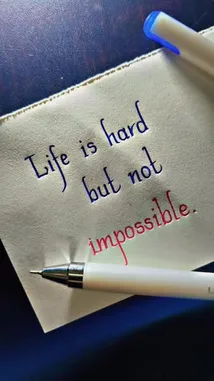 Life is hard
but not
impossible.